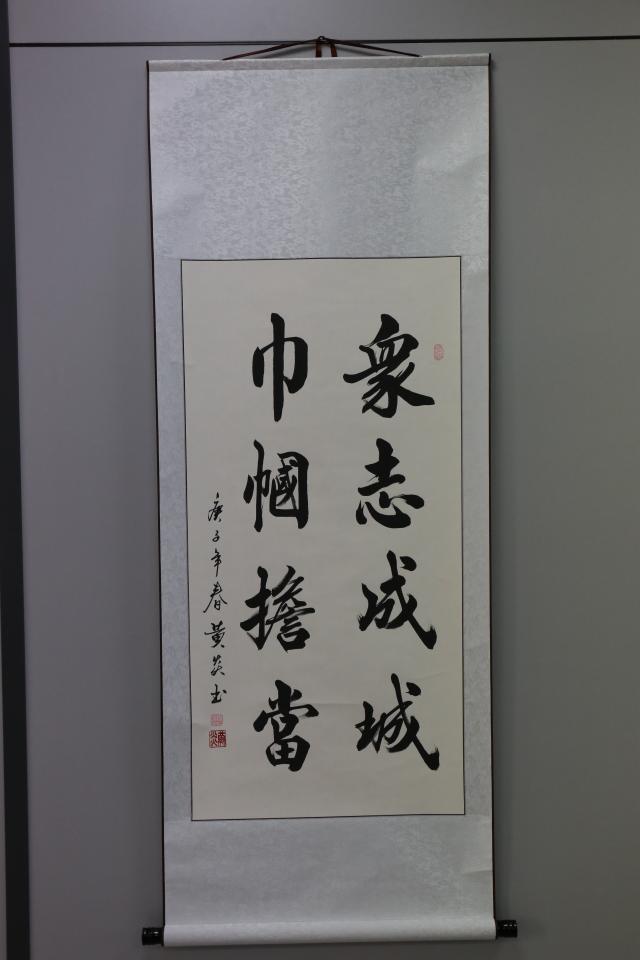 眾志成城
巾幗擔當
庚子年春黄炎书